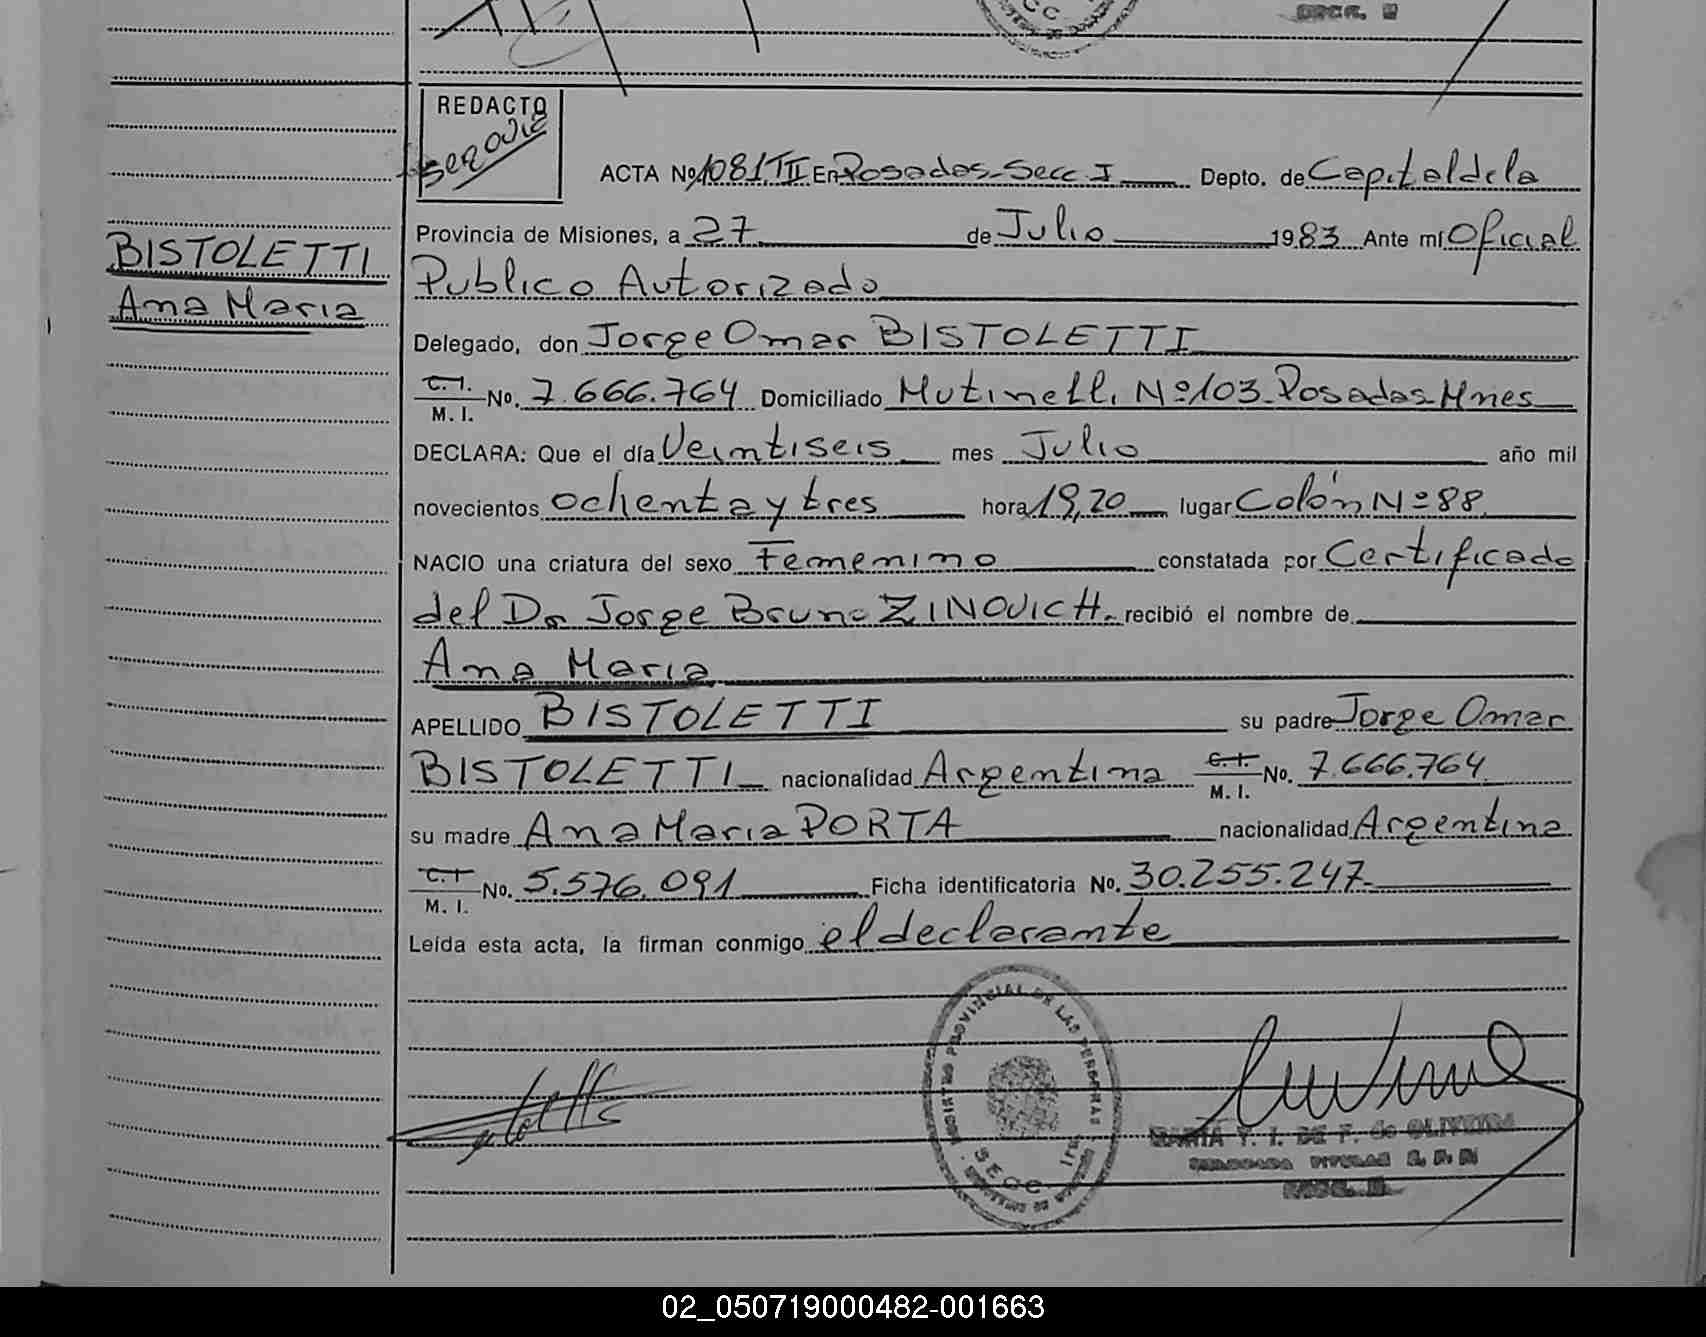 REDACTO
ACTA No. 1081 TII En Posadas-Secc I Depto. de Capital de la
Provincia de Misiones, a 27 de Julio 1983 Ante mí Oficial
BISTOLETTI
Ana Maria
Publico Autorizado
Delegado, don Jorge Omar BISTOLETTI
C. I.
M. I. No. 7.666.764 Domiciliado Mutinelli Nº 103 Posadas Mnes
DECLARA: Que el día Veintiseis mes Julio año mil
novecientos ochenta y tres hora 19,20 lugar Colón Nº 88
NACIO una criatura del sexo Femenino constatada por Certificado
del Dr Jorge Bruno ZINOVICH. recibió el nombre de
Ana Maria
APELLIDO BISTOLETTI su padre Jorge Omar
BISTOLETTI nacionalidad Argentina C. I. M. I. No. 7.666.764
su madre Ana Maria PORTA nacionalidad Argentina
C. I.
M. I. No. 5.576.091 Ficha identificatoria No. 30.255.247
Leída esta acta, la firman conmigo el declarante
REGISTRO PROVINCIAL DE LAS PERSONAS
SECC
MARIA Y. I. DE F. de OLIVEIRA
02_050719000482-001663